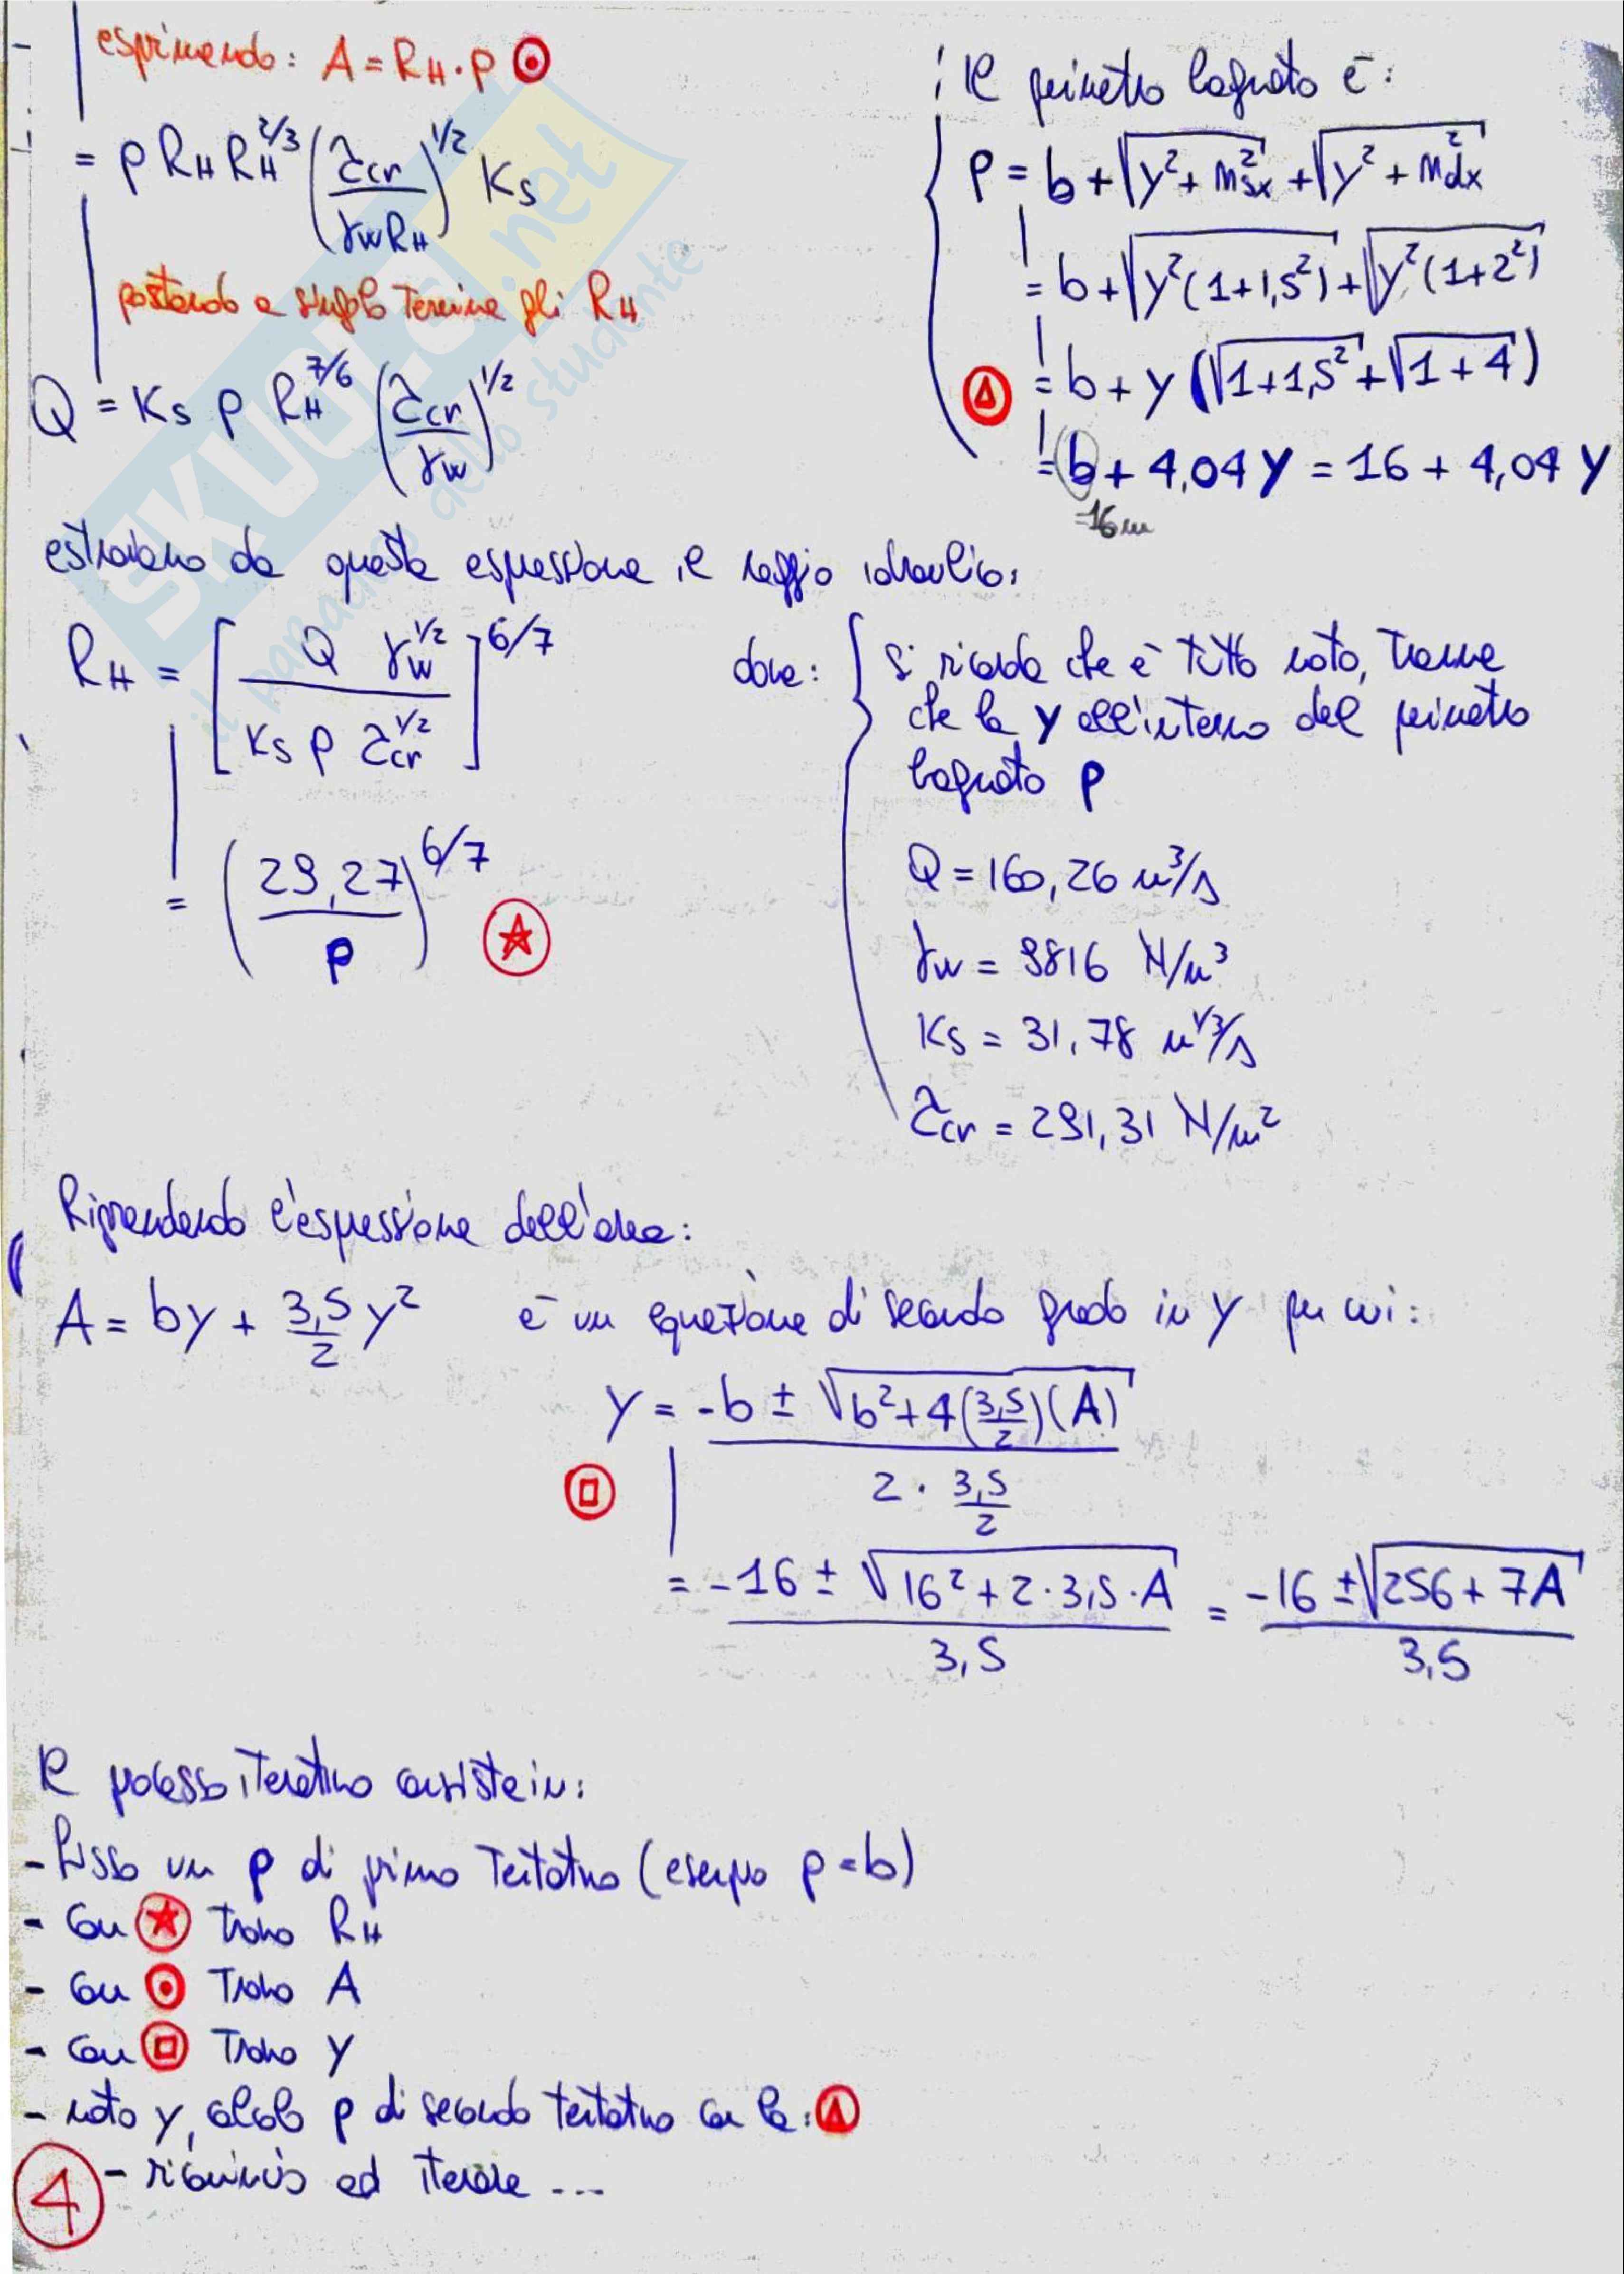 esprimendo: A = RH · p ⊙
= p RH RH^2/3 (τcr / γw RH)^1/2 Ks
portando a singolo termine gli RH
Q = Ks p RH^7/6 (τcr / γw)^1/2
il perimetro bagnato è:
p = b + √(y² + m²sx) + √(y² + m²dx)
= b + √(y²(1+1,5²)) + √(y²(1+2²))
△ = b + y (√(1+1,5²) + √(1+4))
= b + 4,04 y = 16 + 4,04 y
=16 m
estraiamo da questa espressione il raggio idraulico:
RH = [Q γw^1/2 / Ks p τcr^1/2]^6/7
= (29,27 / p)^6/7 ☆
dove:
si ricorda che è tutto noto, tranne
che la y all'interno del perimetro
bagnato p
Q = 160,26 m³/s
γw = 9816 N/m³
Ks = 31,78 m^1/3/s
τcr = 291,31 N/m²
Riprendendo l'espressione dell'area:
A = by + 3,5/2 y² è un equazione di secondo grado in y per cui:
y = -b ± √(b² + 4(3,5/2)(A)) / 2 · 3,5/2
□
= -16 ± √(16² + 2·3,5·A) / 3,5 = -16 ± √(256 + 7A) / 3,5
Il processo iterativo consiste in:
- Fisso un p di primo tentativo (esempio p = b)
- con ☆ trovo RH
- con ⊙ trovo A
- con □ trovo y
- noto y, calcolo p di secondo tentativo con la: △
- ricomincio ed iterare ...
4
SKUOLA.net
il paradiso dello studente